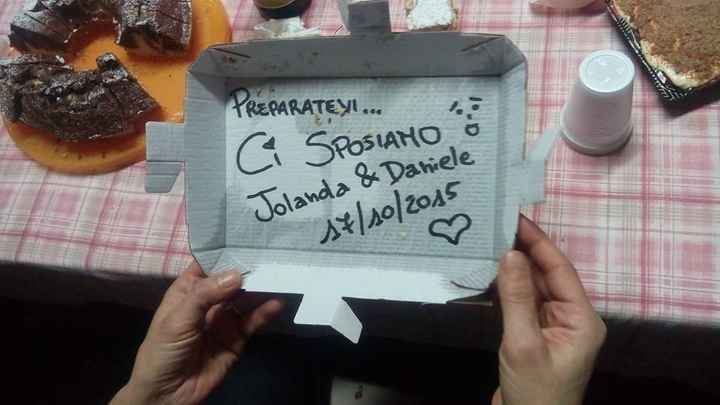 PREPARATEVI...
Ci SPOSIAMO
Jolanda & Daniele
17/10/2015